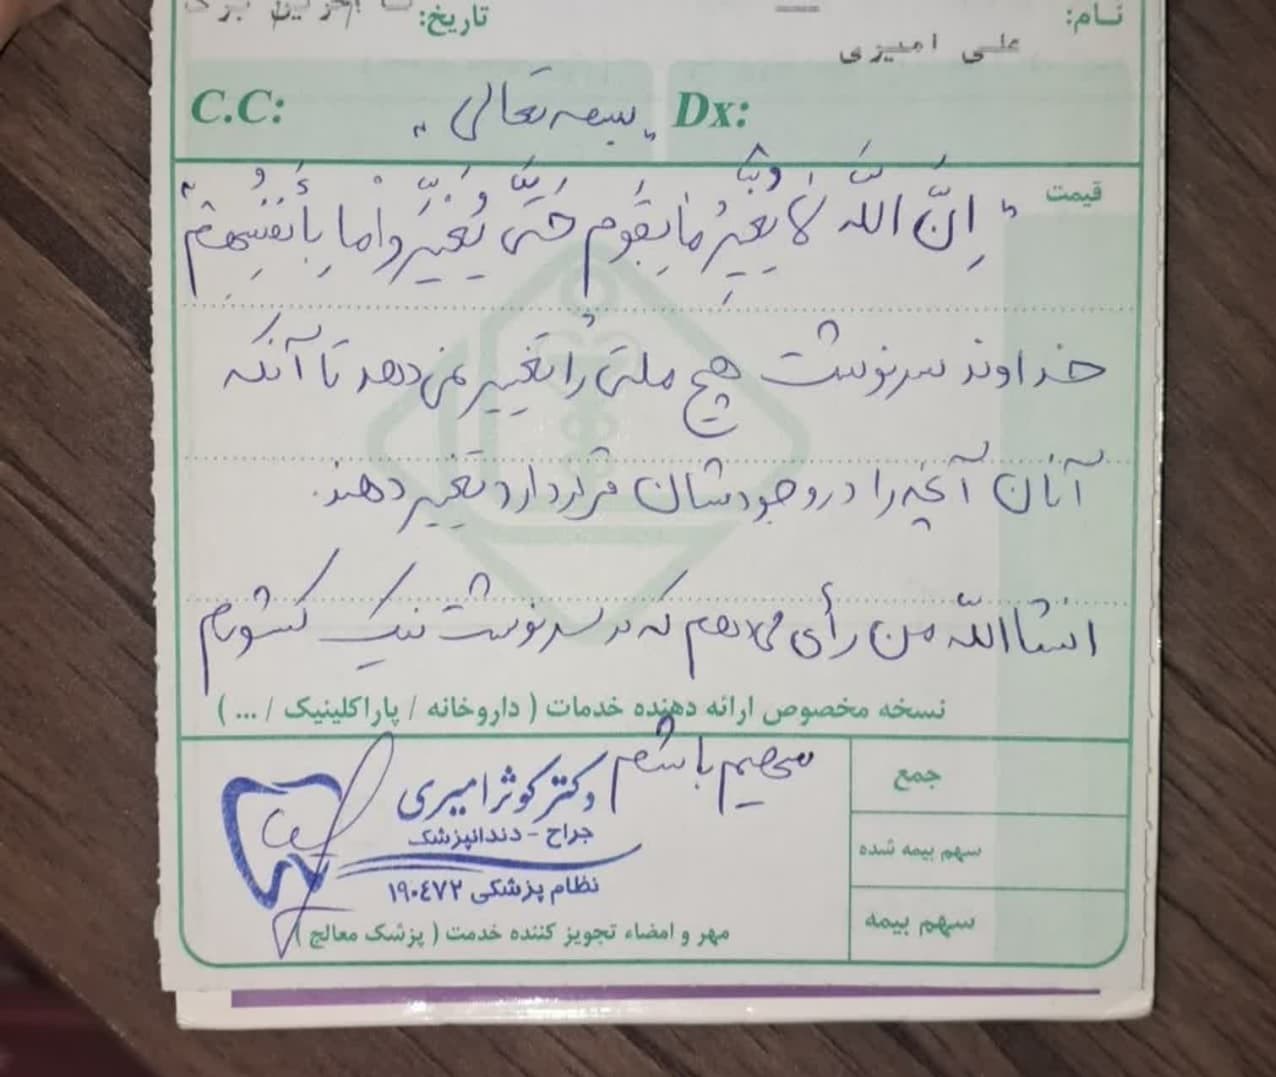 نام:
تاریخ:
علی امیری
Dx:
"بسمه تعالی"
C.C:
قیمت
"اِنَّ اللهَ لاٰ یُغَیِّرُ مٰا بِقَومٍ حَتّیَ یُغَیِّرُوامٰا بِأَنفُسِهِم"
خداوند سرنوشت هیچ ملتی را تغییر نمی‌دهد تا آنکه
آنان آنچه را در وجودشان قرار دارد تغییر دهند.
انشاالله من رأی می‌دهم که در سرنوشت نیک کشورم
نسخه مخصوص ارائه دهنده خدمات ( داروخانه / پاراکلینیک / ... )
سهیم باشم
دکتر کوثر امیری
جراح - دندانپزشک
نظام پزشکی ۱۹۰٤۷۲
مهر و امضاء تجویز کننده خدمت ( پزشک معالج )
جمع
سهم بیمه شده
سهم بیمه